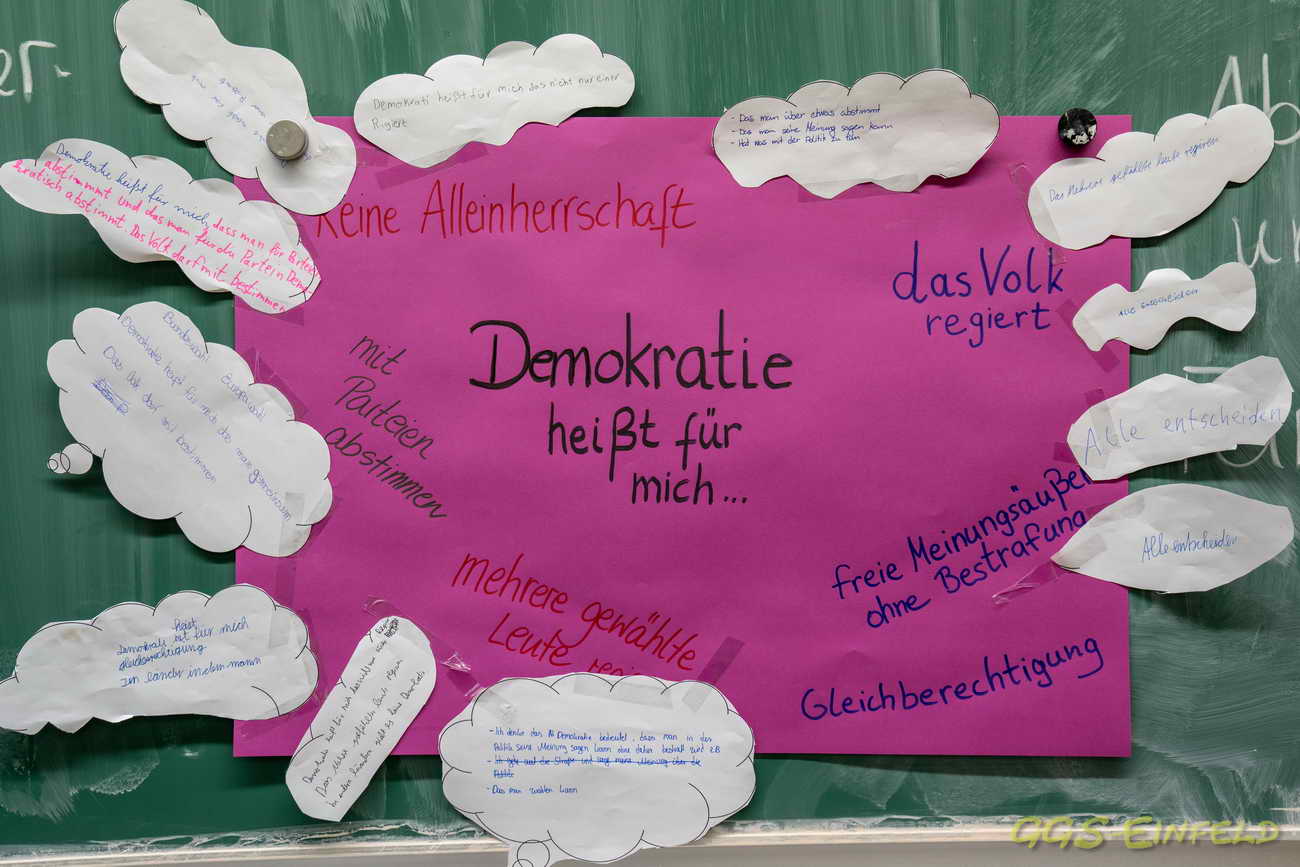 er-
Demokrati heißt für mich das nicht nur einer
Rigiert
- Das man über etwas abstimmt
- Das man seine Meinung sagen kann
- Hat was mit der Politik zu tun
Ab
Das Mehrere gefählte leute regiren
Demokratie heißt für mich, dass man für Partein
abstimmt und das man für du Partein Demo-
kratisch abstimmt. Das Volk darf mit bestimmen
Keine Alleinherrschaft
das Volk
regiert
Alle entscheiden
Demokratie
heißt für
mich...
mit
Parteien
abstimmen
Bundeswahl Europawahl
Demokratie heißt für mich das man gemeinsam
Das Volk darf mit bestimmen
Alle entscheiden
freie Meinungsäußer
ohne Bestrafung
Alle entscheiden
mehrere gewählte
Leute regi
Gleichberechtigung
heist
Demokrati ist für mich
gleichberechtigung
Demokratie heißt für mich
Das Mehre gefählten leute regiren
- Ich denke das Demokratie bedeutet, dass man in der
Politik seine Meinung sagen kann ohne dafür bestraft wird z.B
- Ich geh auf die Straße und sage meine Meinung über die
Politik
- Das man wählen kann
GGS-EINFELD